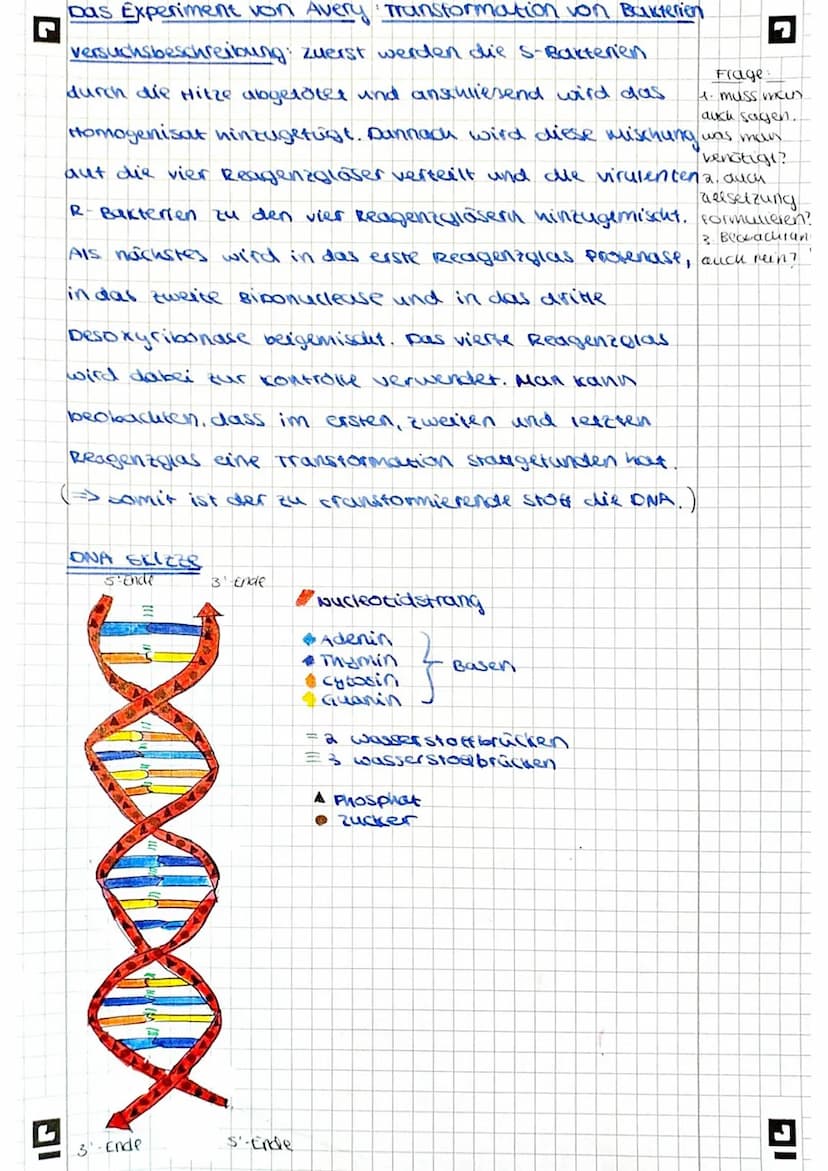 Das Experiment von Avery: Transformation von Bakterien
Versuchsbeschreibung: zuerst werden die S-Bakterien
durch die Hitze abgetötet und anschliesend wird das
Homogenisat hinzugefügt. Dannach wird diese Mischung
auf die vier Reagenzgläser verteilt und die virulenten
R-Bakterien zu den vier Reagenzgläsern hinzugemischt.
Als nächstes wird in das erste Reagenzglas Protenase,
in das zweite Bibonuclease und in das dritte
Desoxyribonase beigemischt. Das vierte Reagenzglas
wird dabei zur Kontrolle verwendet. Man kann
beobachten, dass im ersten, zweiten und letzten
Reagenzglas eine Transformation stattgefunden hat.
(=> somit ist der zu transformierende Stoff die DNA.)
Frage:
1. muss man
auch sagen,
was man
benötigt?
2. auch
Zielsetzung
formulieren?
3 Beobachtun
auch rein?
DNA Skizze
5'-Ende 3'-Ende
Nucleotidstrang
Adenin
Thymin
Cytosin
Guanin
Basen
= 2 Wasserstoffbrücken
≡ 3 Wasserstoffbrücken
▲ Phosphat
● Zucker
3'-Ende 5'-Ende